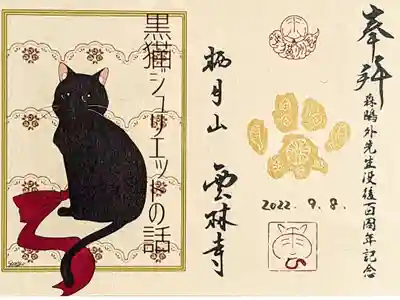 奉拝
森鴎外先生没後百周年記念
2022. 9. 8.
栖月山 雲林寺
黒猫ジュリエットの話